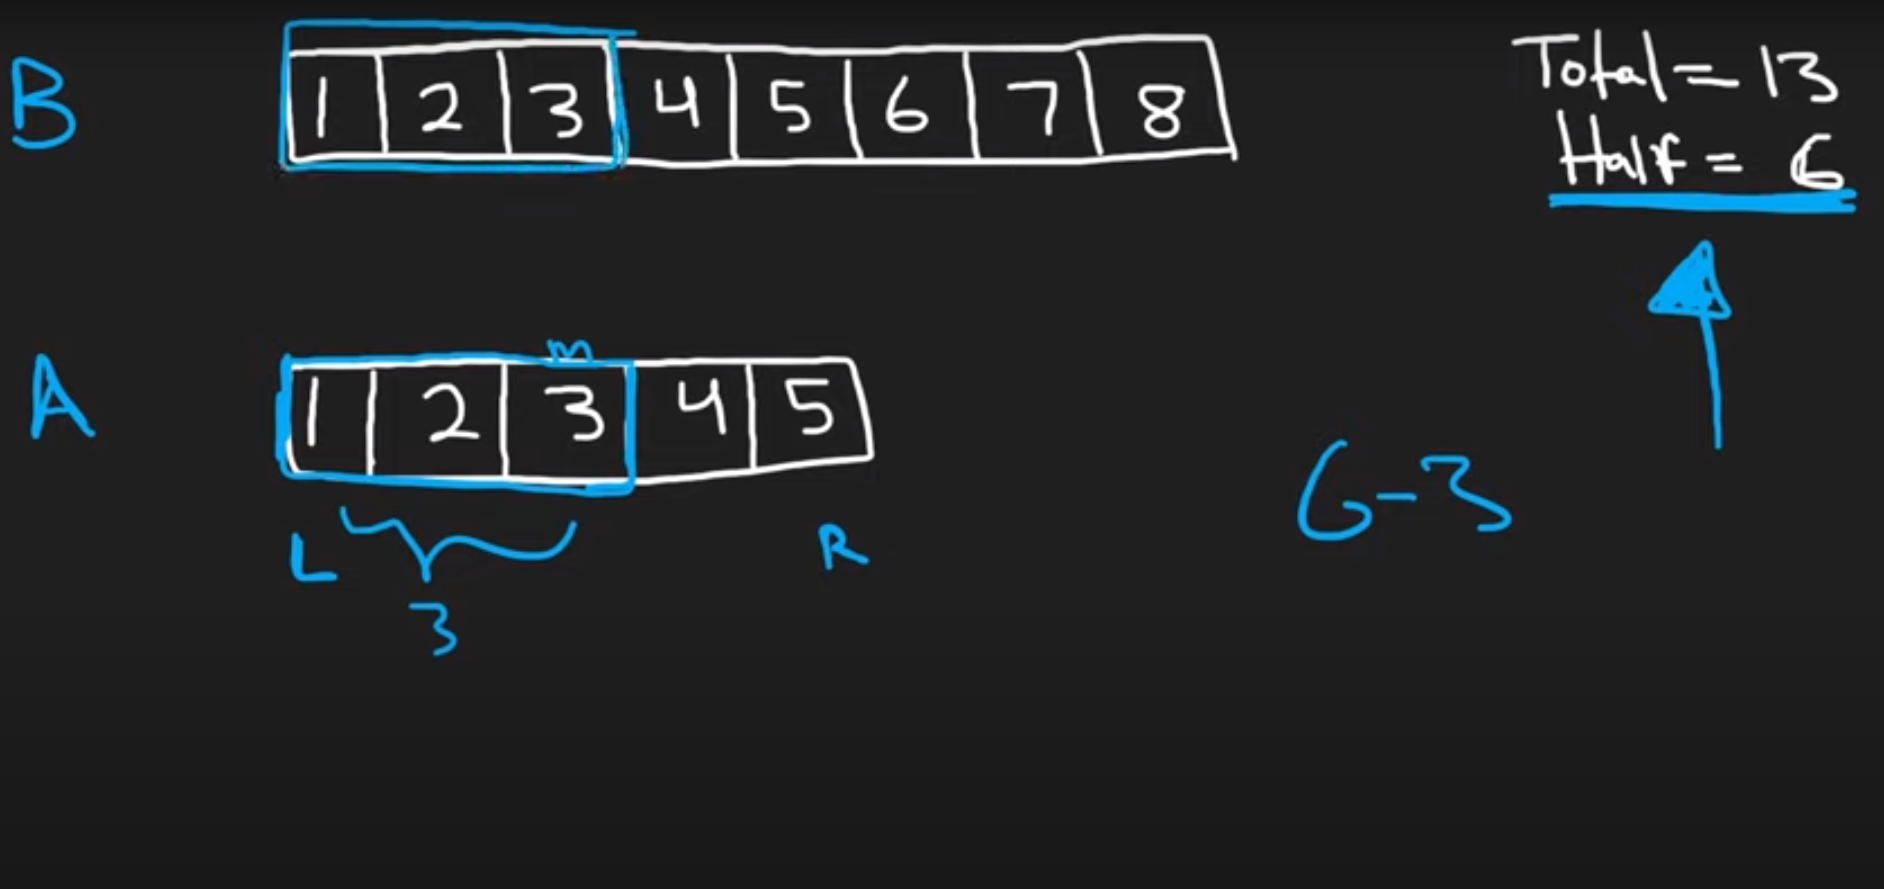 B 1 2 3 4 5 6 7 8
Total = 13
Half = 6
m
A 1 2 3 4 5
6-3
L R
3